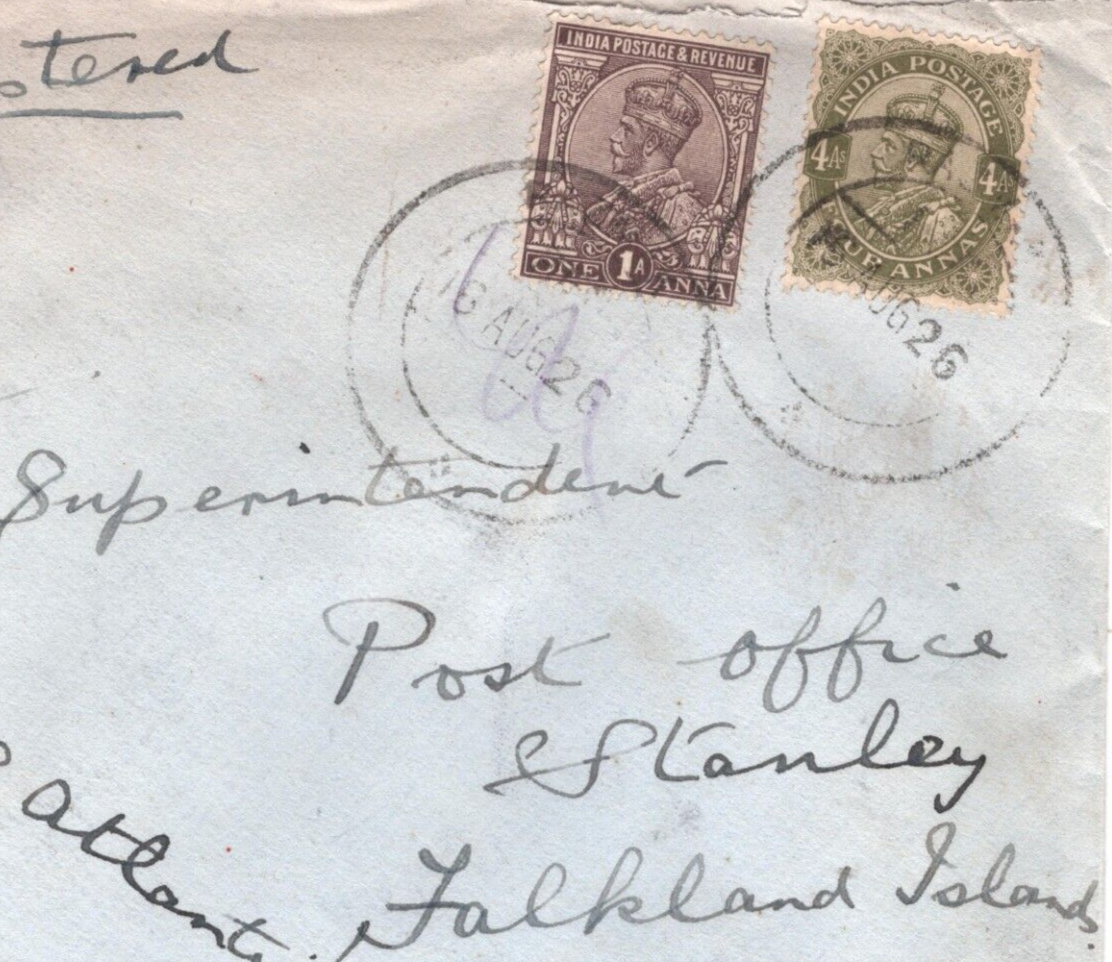 stered
INDIA POSTAGE & REVENUE
ONE 1A ANNA
INDIA POSTAGE
4As 4As
FOUR ANNAS
6 AUG 26
AUG 26
Superintendent
Post office
Stanley
Falkland Islands.
Atlantic